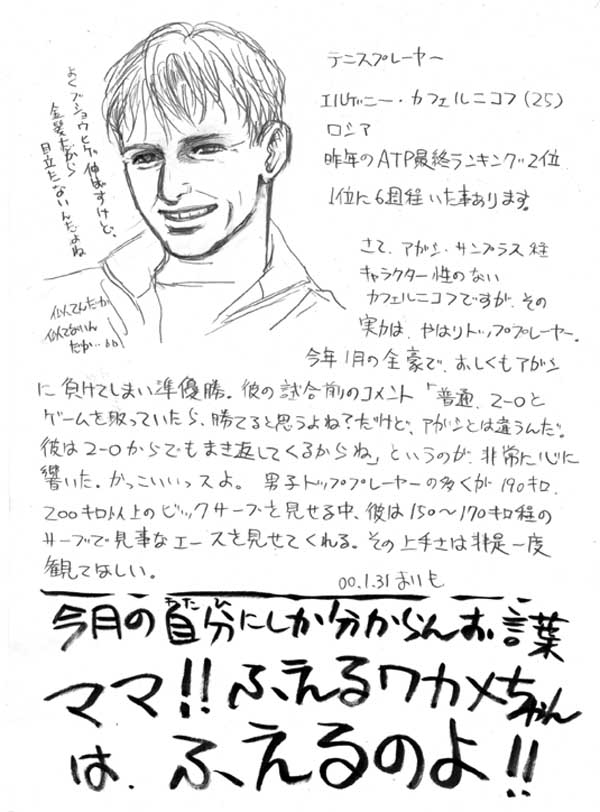 テニスプレーヤー
エルゲニー・カフェルニコフ(25)
ロシア
昨年のATP最終ランキング2位
1位に6週程いた事あります。
よくブショウヒゲ伸ばすけど、
金髪だから
目立たないんだよね
似てんだか
似てないん
だか…
さて、アガシ・サンプラス程
キャラクター性のない
カフェルニコフですが、その
実力は、やはりトッププレーヤー。
今年1月の全豪で、おしくもアガシ
に負けてしまい準優勝。彼の試合前のコメント「普通、2-0と
ゲームを取っていたら、勝てると思うよね?だけど、アガシとは違うんだ。
彼は2-0からでもまき返してくるからね」というのが、非常に心に
響いた。かっこいいっスよ。男子トッププレーヤーの多くが190キロ、
200キロ以上のビックサーブを見せる中、彼は150~170キロ程の
サーブで見事なエースを見せてくれる。その上手さは是非一度
観てほしい。
00.1.31 まいも
今月の自分にしか分からんお言葉
ママ!!ふえるワカメちゃん
は、ふえるのよ!!